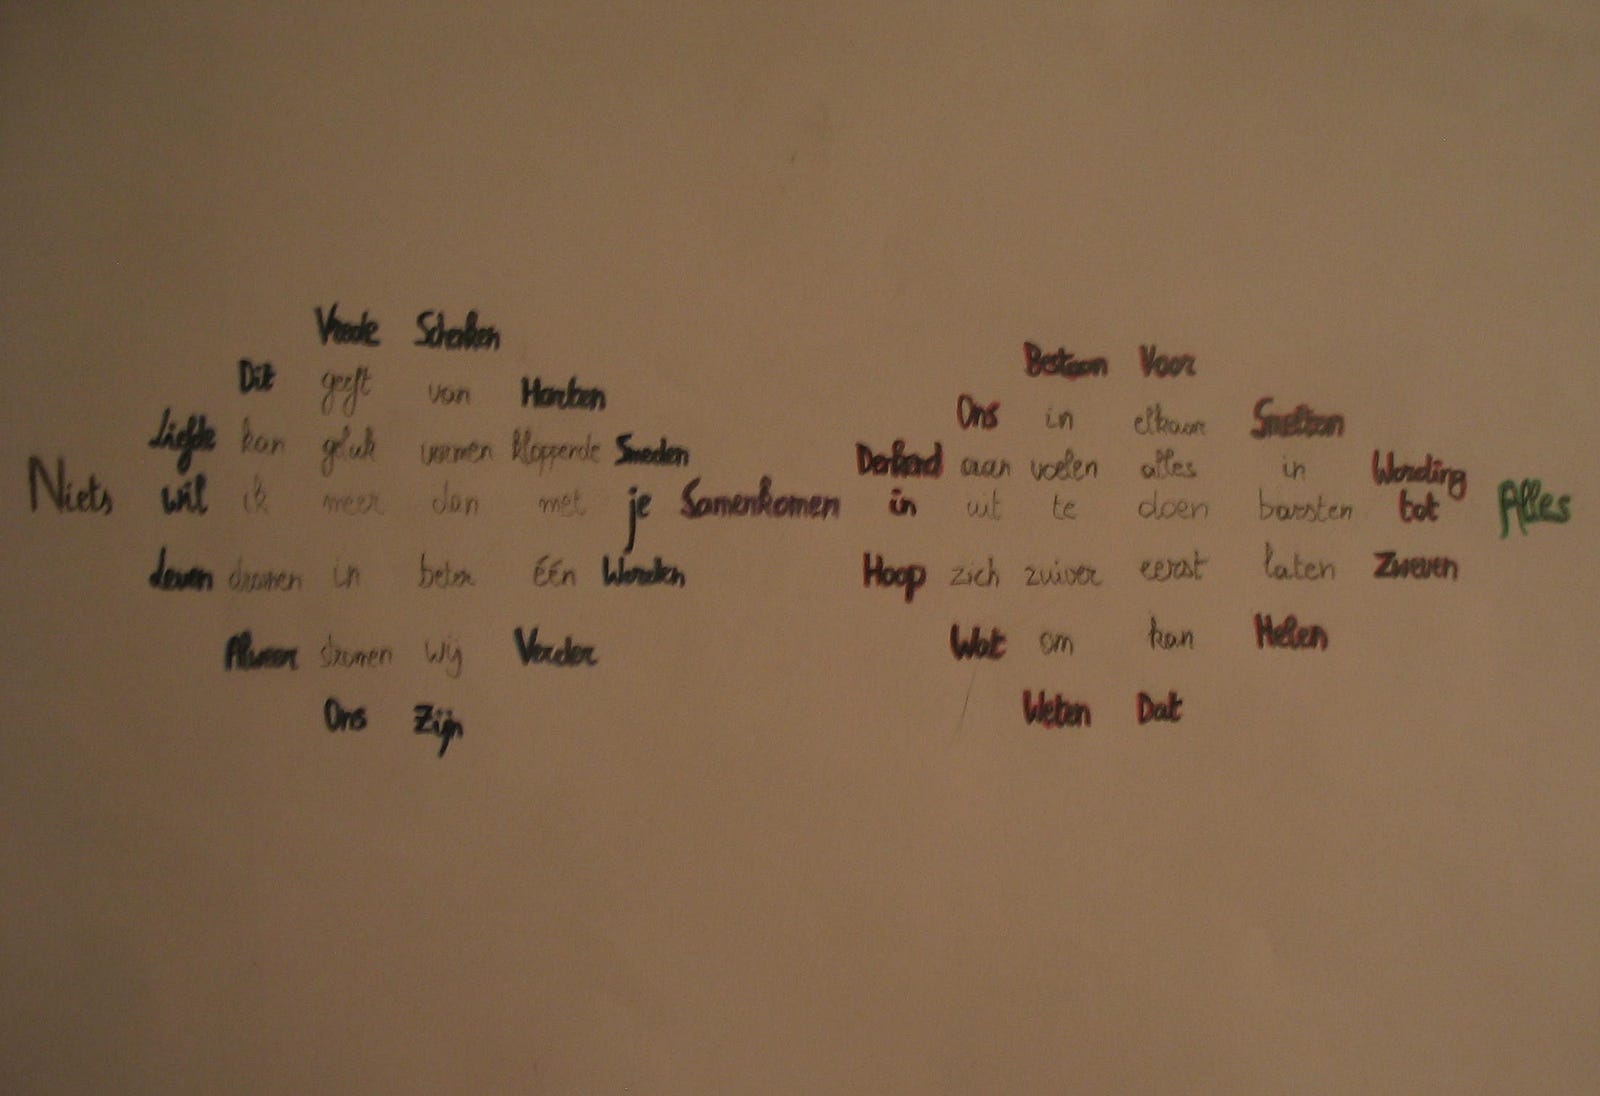 Vrede Schenken
Bestaan Voor
Dit geeft van Harten
Ons in elkaar Smelten
Liefde kan geluk vormen kloppende Smeden
Denkend aan voelen alles in Wording
Niets wil ik meer dan met je Samenkomen in uit te doen barsten tot Alles
Leven dromen in beter één Worden
Hoop zich zuiver eerst laten Zweven
Alweer stromen wij Verder
Wat om kan Helen
Ons Zijn
Weten Dat